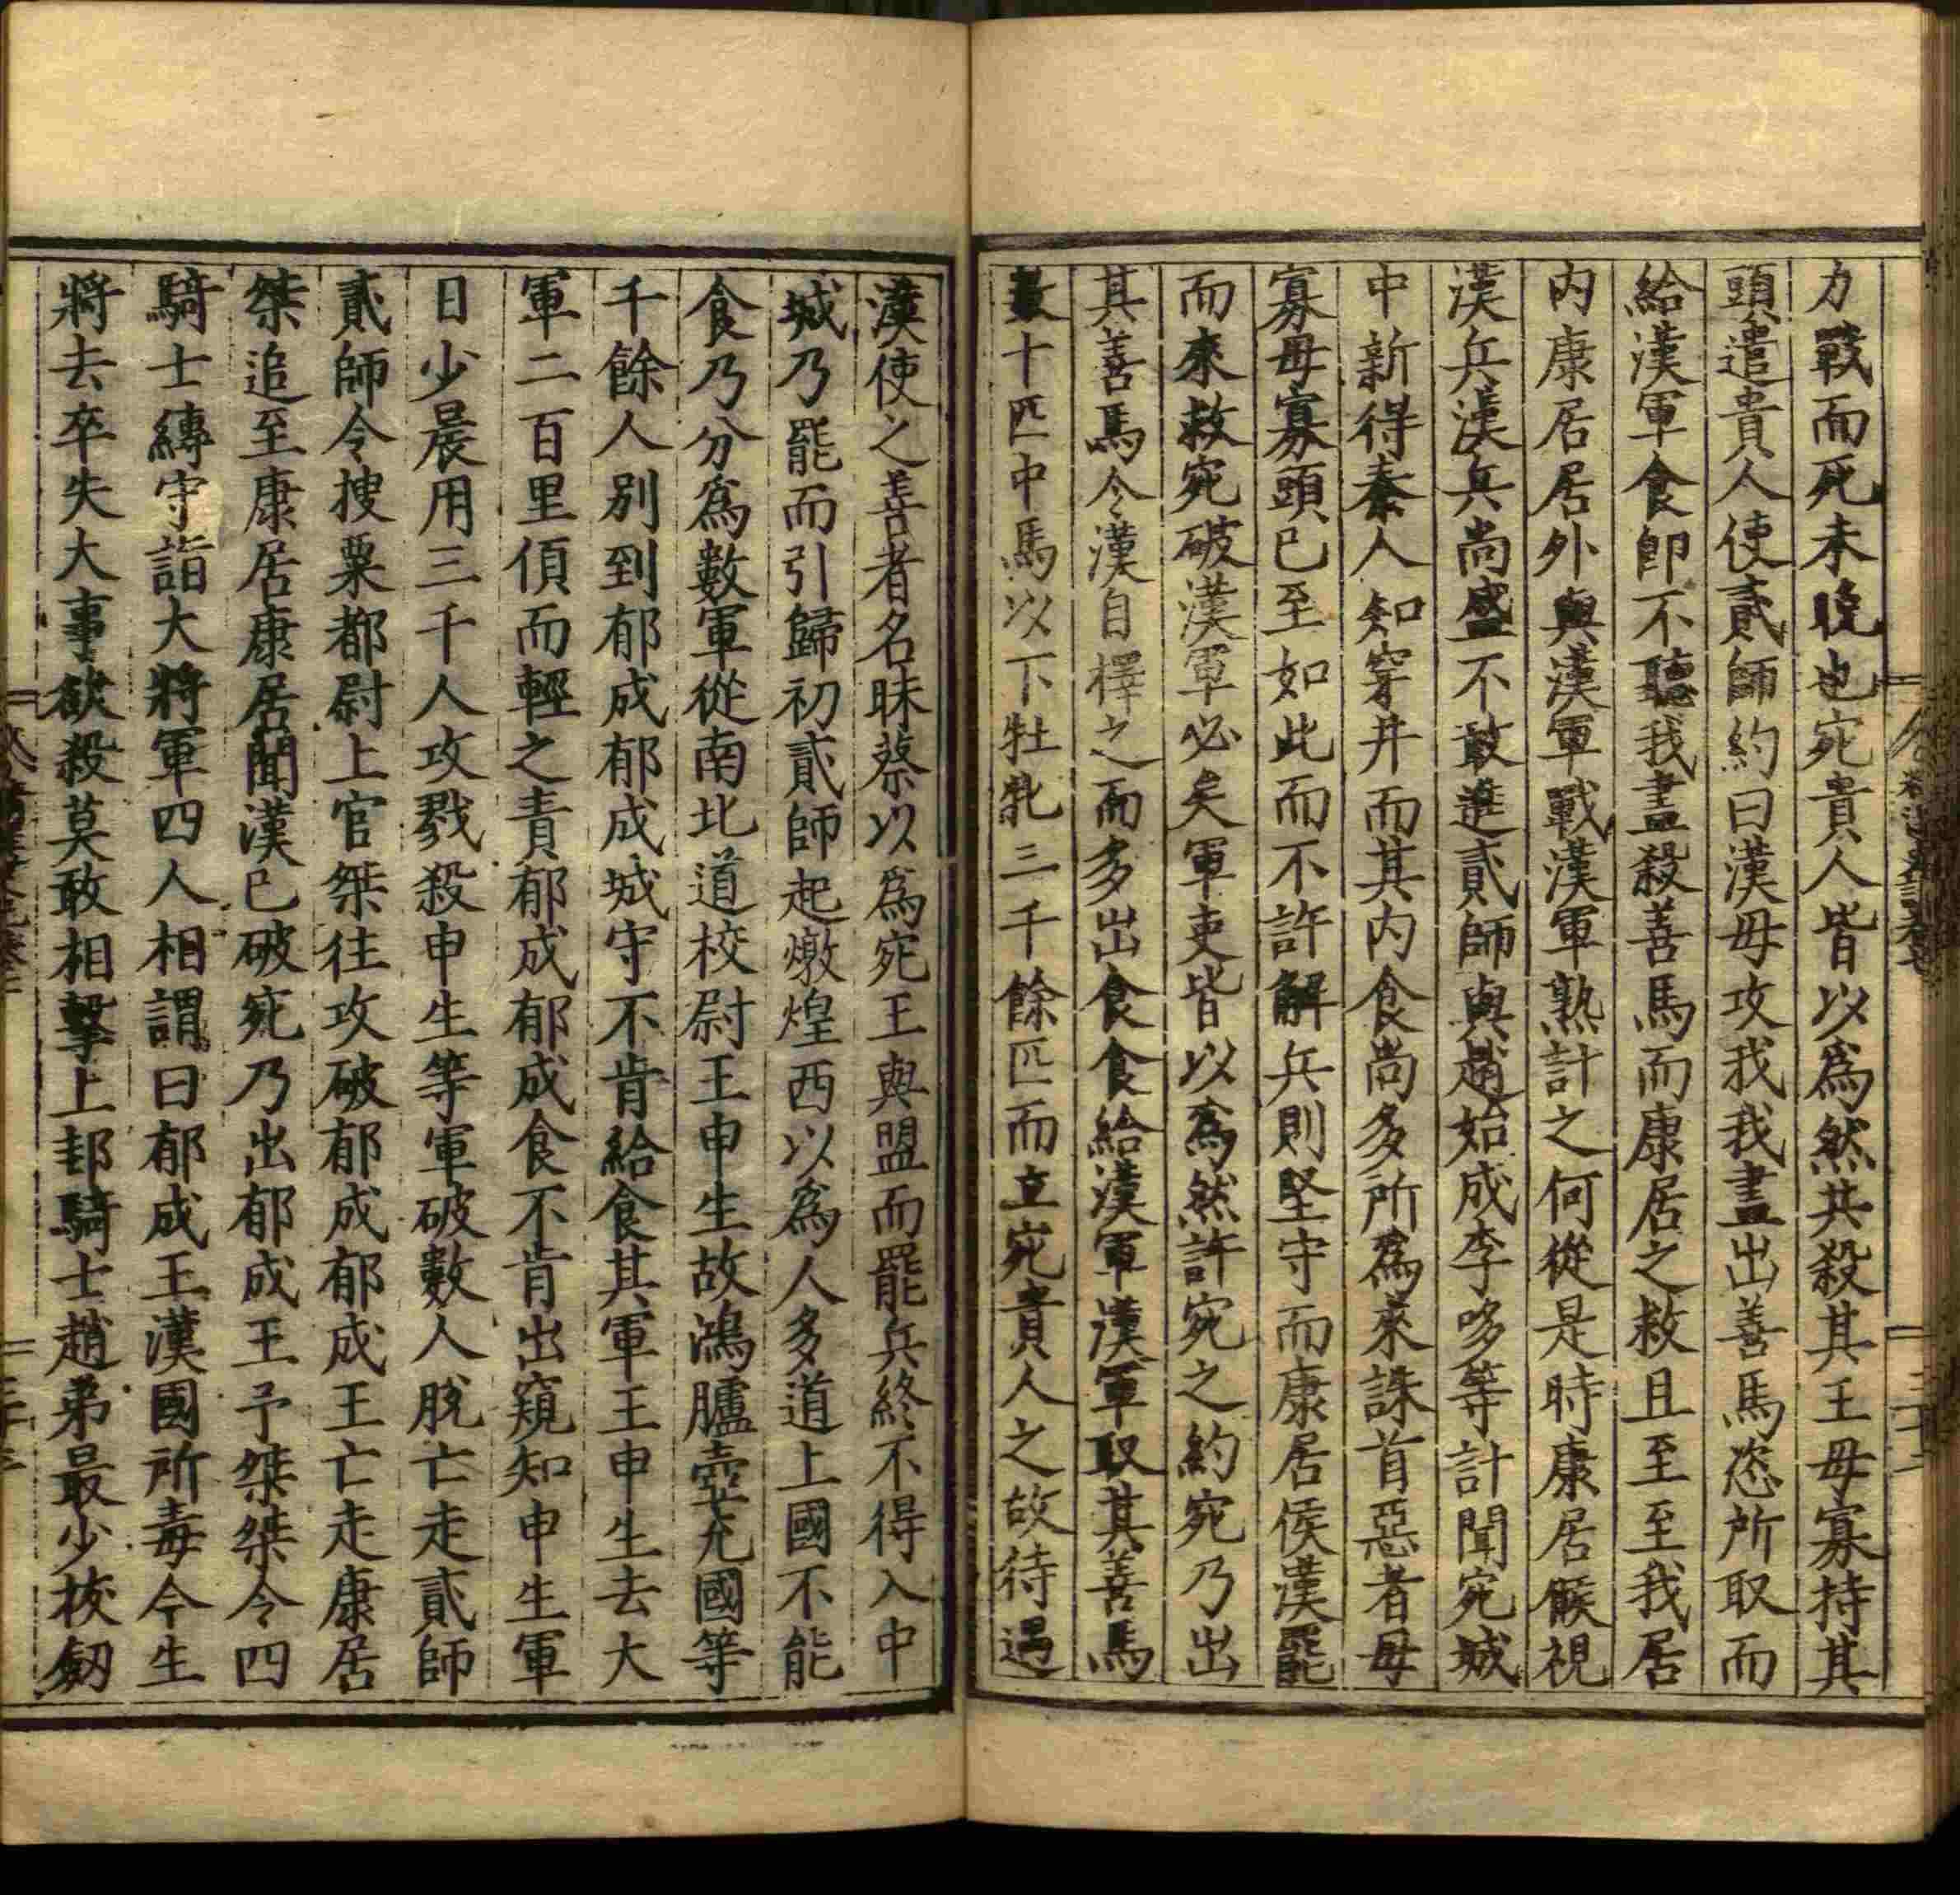 力戰而死未晚也宛貴人皆以爲然共殺其王毋寡持其
頭遣貴人使貳師約曰漢毋攻我我盡出善馬恣所取而
給漢軍食即不聽我盡殺善馬而康居之救且至至我居
内康居居外與漢軍戰漢軍熟計之何從是時康居候視
漢兵漢兵尚盛不敢進貳師與趙始成李哆等計聞宛城
中新得秦人知穿井而其内食尚多所爲來誅首惡者毋
寡毋寡頭已至如此而不許解兵則堅守而康居侯漢罷
而來救宛破漢軍必矣軍吏皆以爲然許宛之約宛乃出
其善馬令漢自擇之而多出食食給漢軍漢軍取其善馬
數十匹中馬以下牡牝三千餘匹而立宛貴人之故待遇
漢使之善者名昧蔡以爲宛王與盟而罷兵終不得入中
城乃罷而引歸初貳師起燉煌西以爲人多道上國不能
食乃分爲數軍從南北道校尉王申生故鴻臚壺充國等
千餘人別到郁成郁成城守不肯給食其軍王申生去大
軍二百里偩而輕之責郁成郁成食不肯出窺知申生軍
日少晨用三千人攻戮殺申生等軍破數人脫亡走貳師
貳師令搜粟都尉上官桀往攻破郁成郁成王亡走康居
桀追至康居康居聞漢已破宛乃出郁成王予桀桀令四
騎士縳守詣大將軍四人相謂曰郁成王漢國所毒今生
將去卒失大事欲殺莫敢相擊上邽騎士趙弟最少拔劒